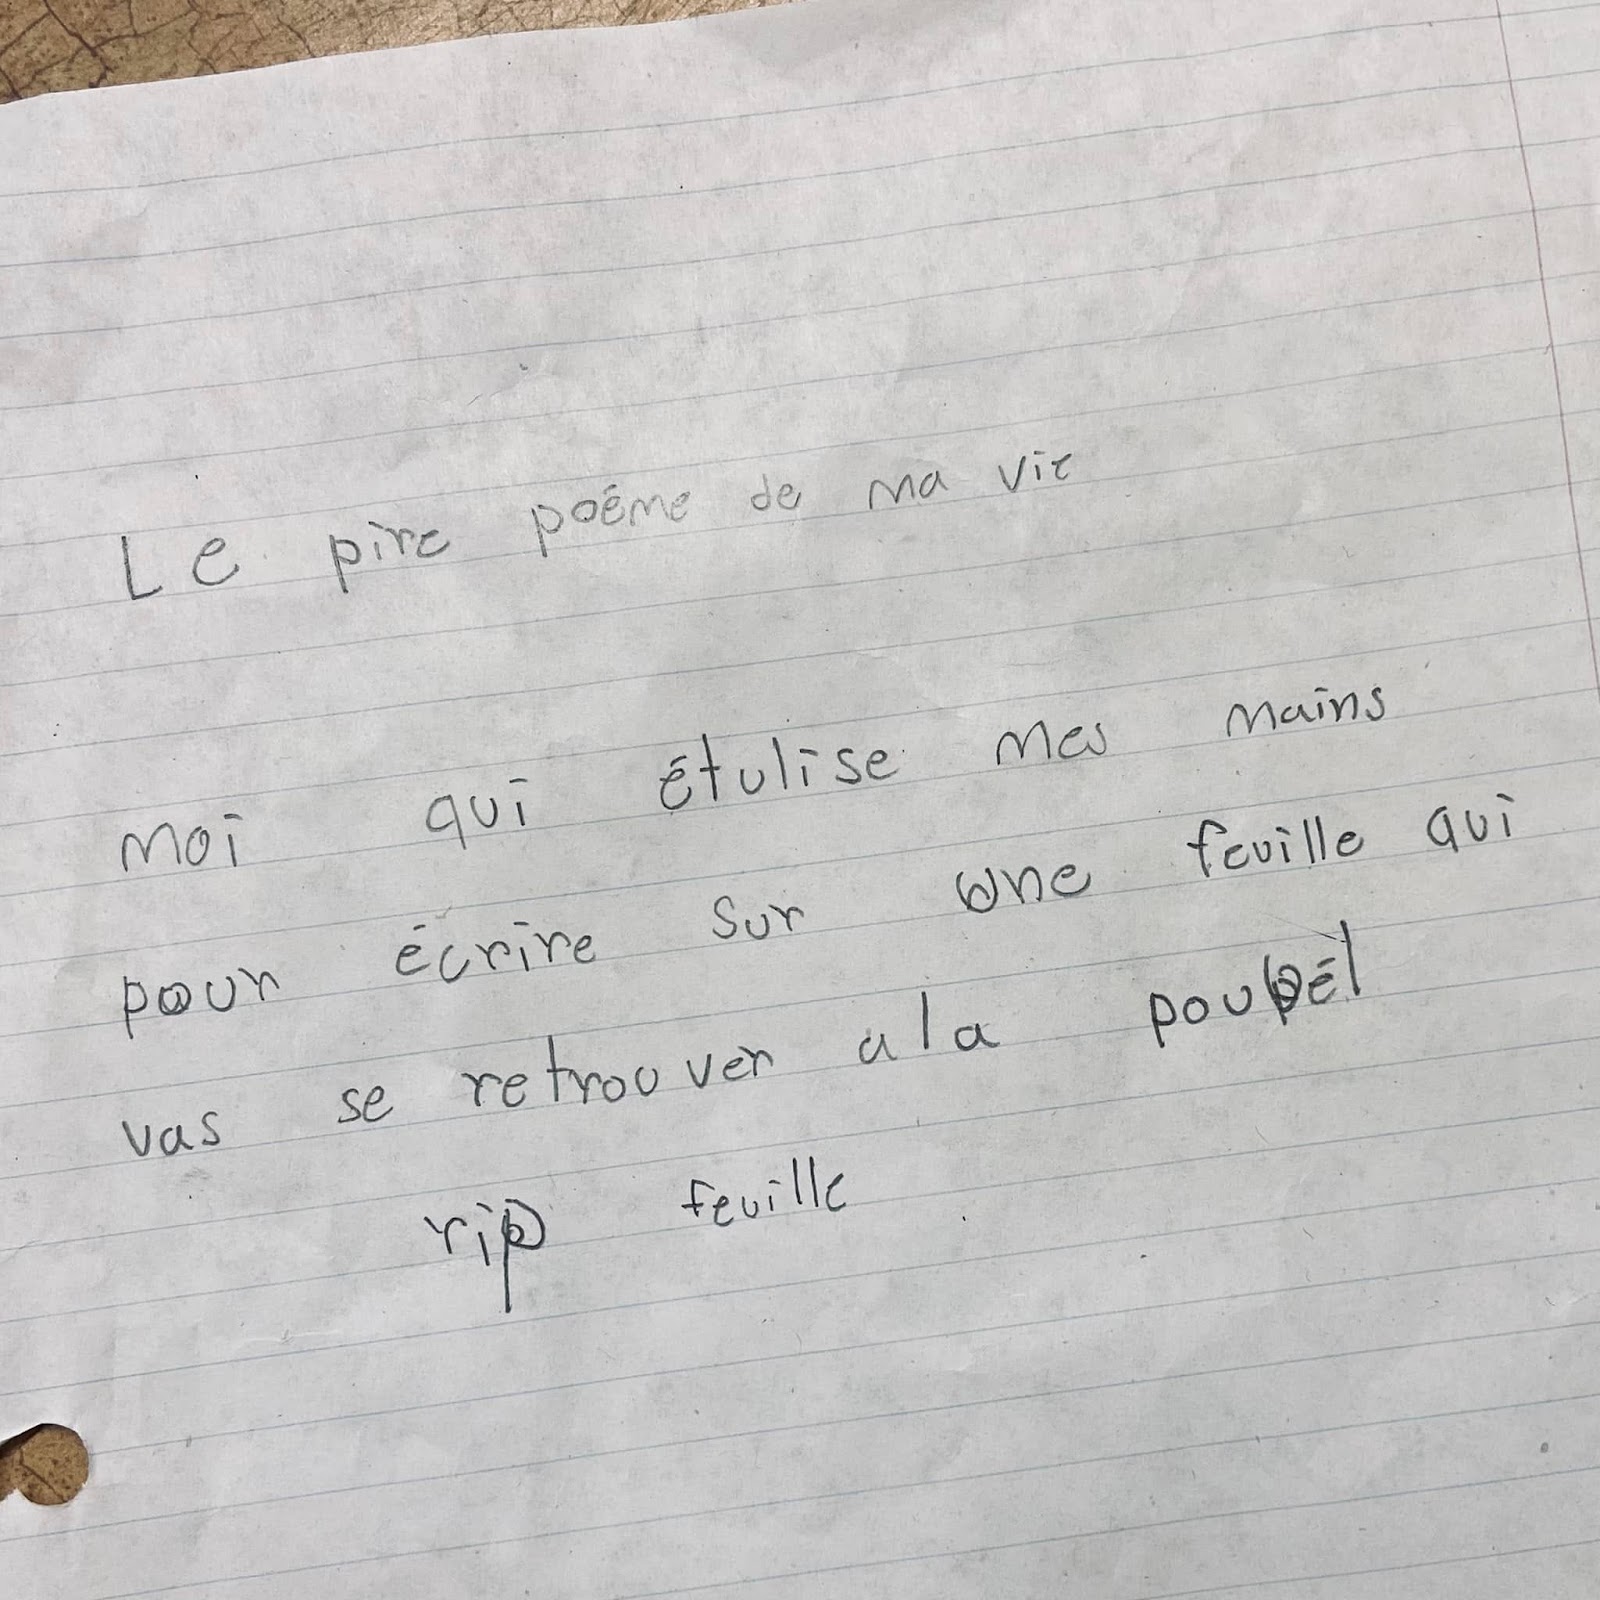 Le pire poéme de ma vie
Moi qui étulise mes mains
pour écrire sur une feuille qui
vas se retrouver a la poubél
rip feuille